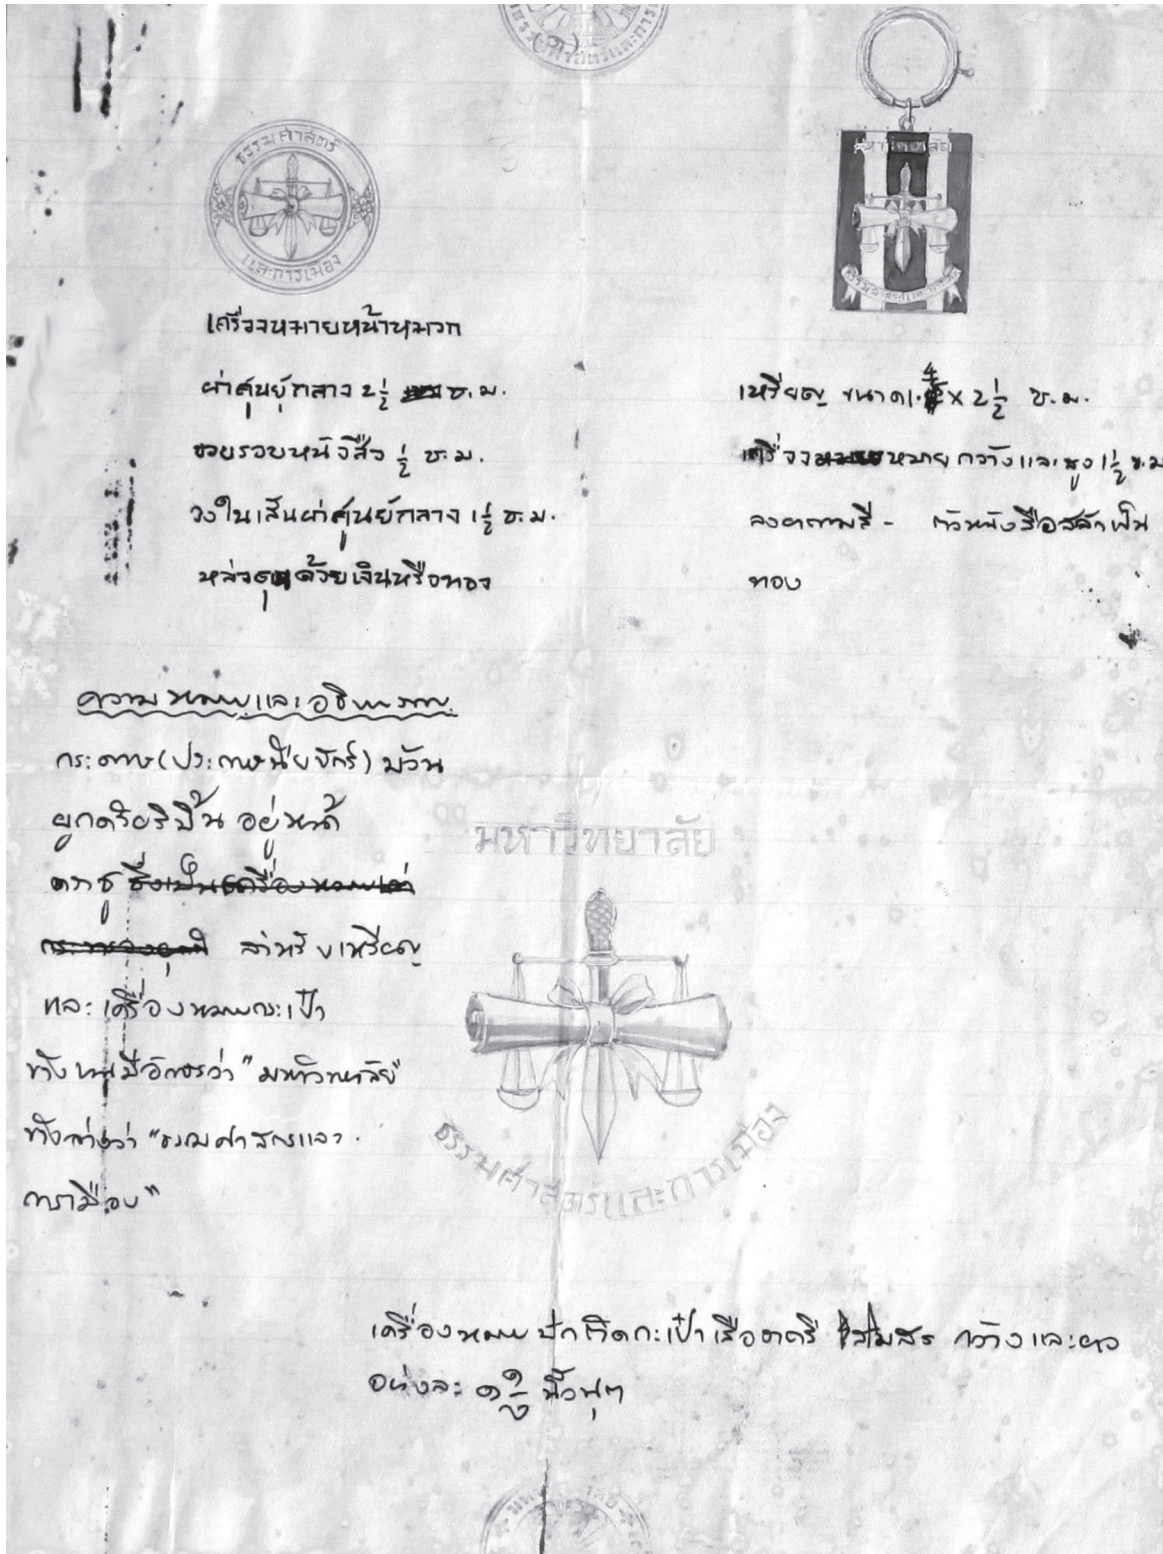 ธรรมศาสตร์
และการเมือง
มหาวิทยาลัย
เครื่องหมายหน้าหมวก
ผ่าศูนย์กลาง 2 1/2 ซ.ม.
ขอบรอบหนังสือ 1/2 ซ.ม.
วงในเส้นผ่าศูนย์กลาง 1 1/2 ซ.ม.
หล่อ ด้วยเงินหรือทอง
เหรียญ ขนาด 1. x 2 1/2 ซ.ม.
เครื่อง หมาย กว้างและสูง 1 1/2 ซ.ม.
ลงยาตามสี - ตัวหนังสือสลักเป็น
ทอง
ความหมายและอธิบาย
กระดาษ(ประกาษนียบัตร์) ม้วน
ผูกด้วยริบบิ้น อยู่หน้า
ตราชู ซึ่งเป็นเครื่องหมาย
สำหรับเหรียญ
และเครื่องหมายกะเป๋า
ข้างบนมีอักษรว่า "มหาวิทยาลัย"
ข้างล่างว่า "ธรรมศาสตร์และ
การเมือง"
มหาวิทยาลัย
ธรรมศาสตร์และการเมือง
เครื่องหมายปักติดกะเป๋าเสื้อ สโมสร กว้างและยาว
อย่างละ ๓ ๑/๒ นิ้วฟุต